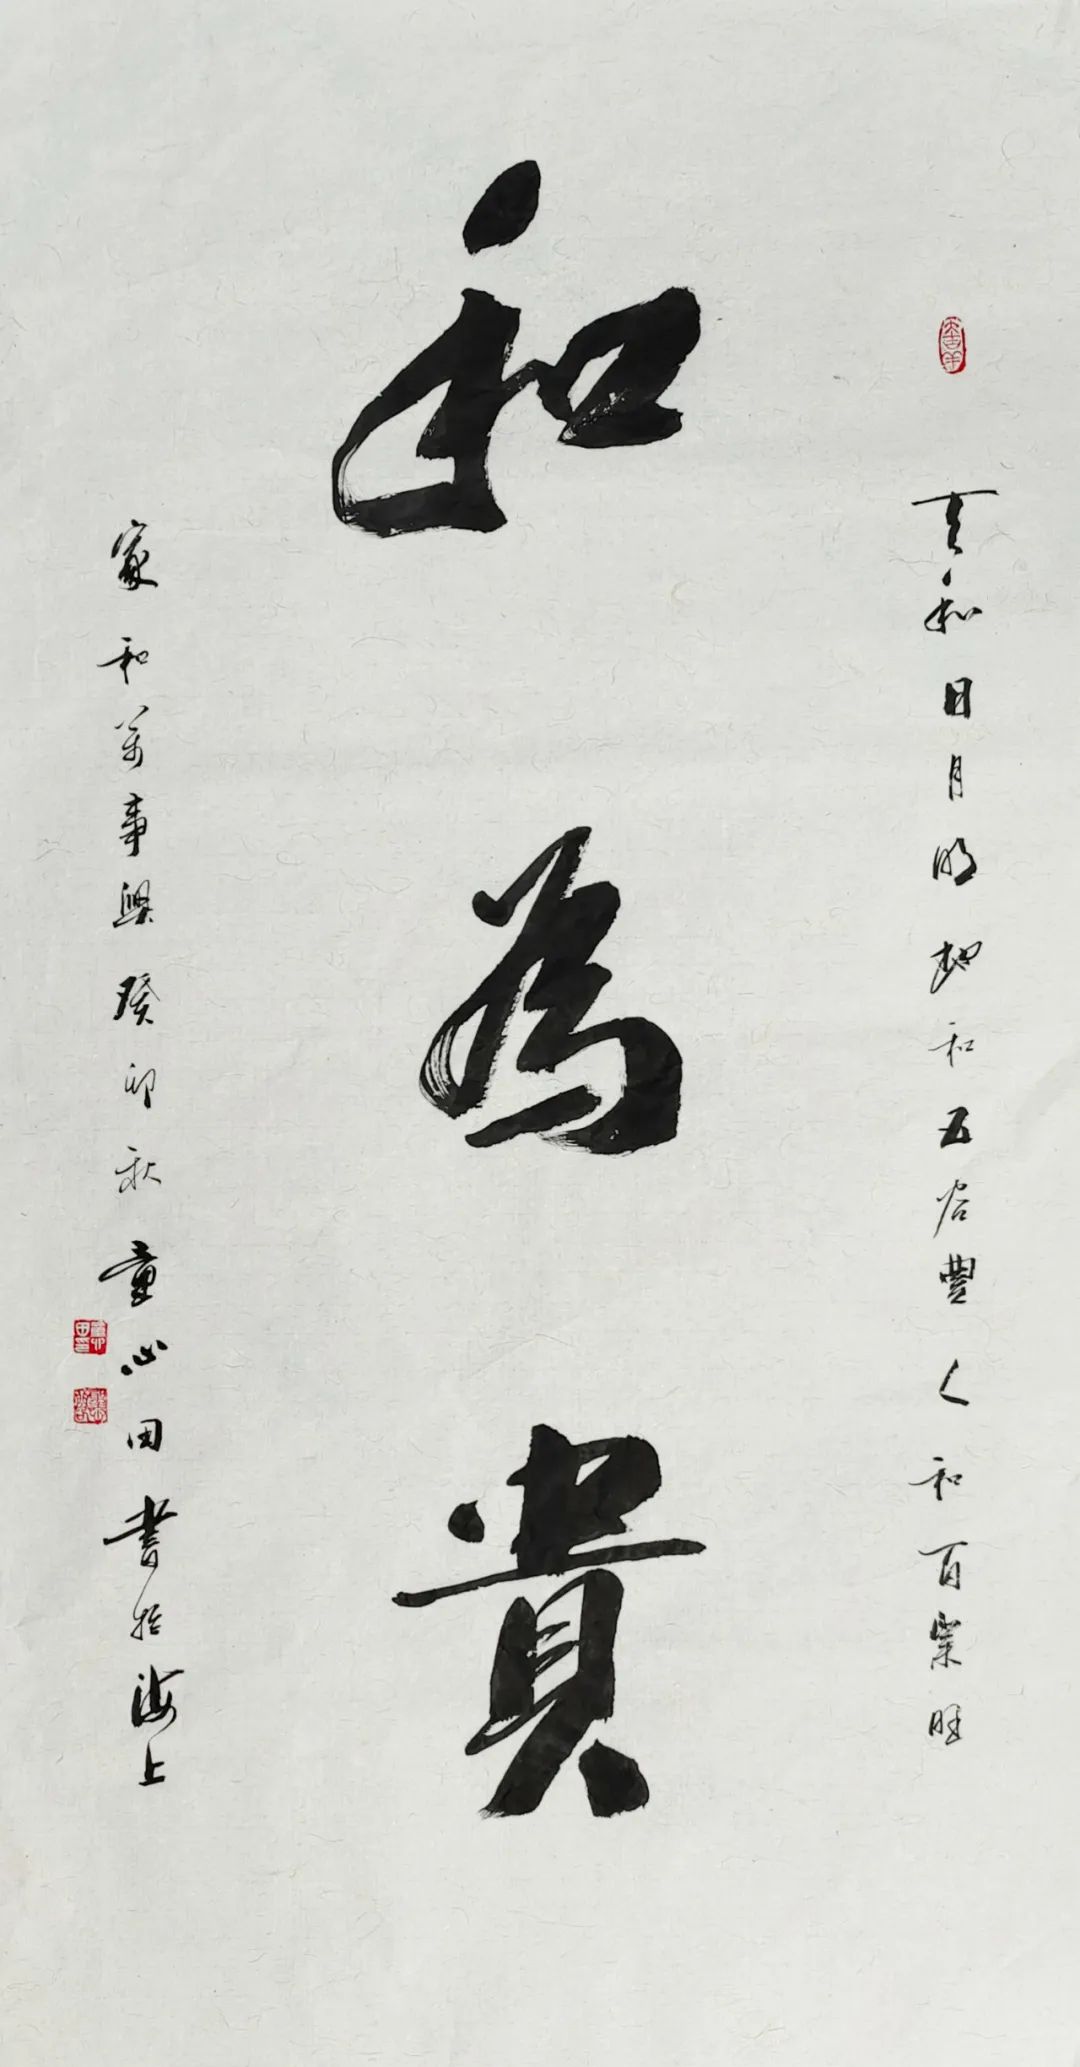 天和日月明地和五谷豐人和百業旺
和為貴
家和萬事興癸卯秋童心田書於海上